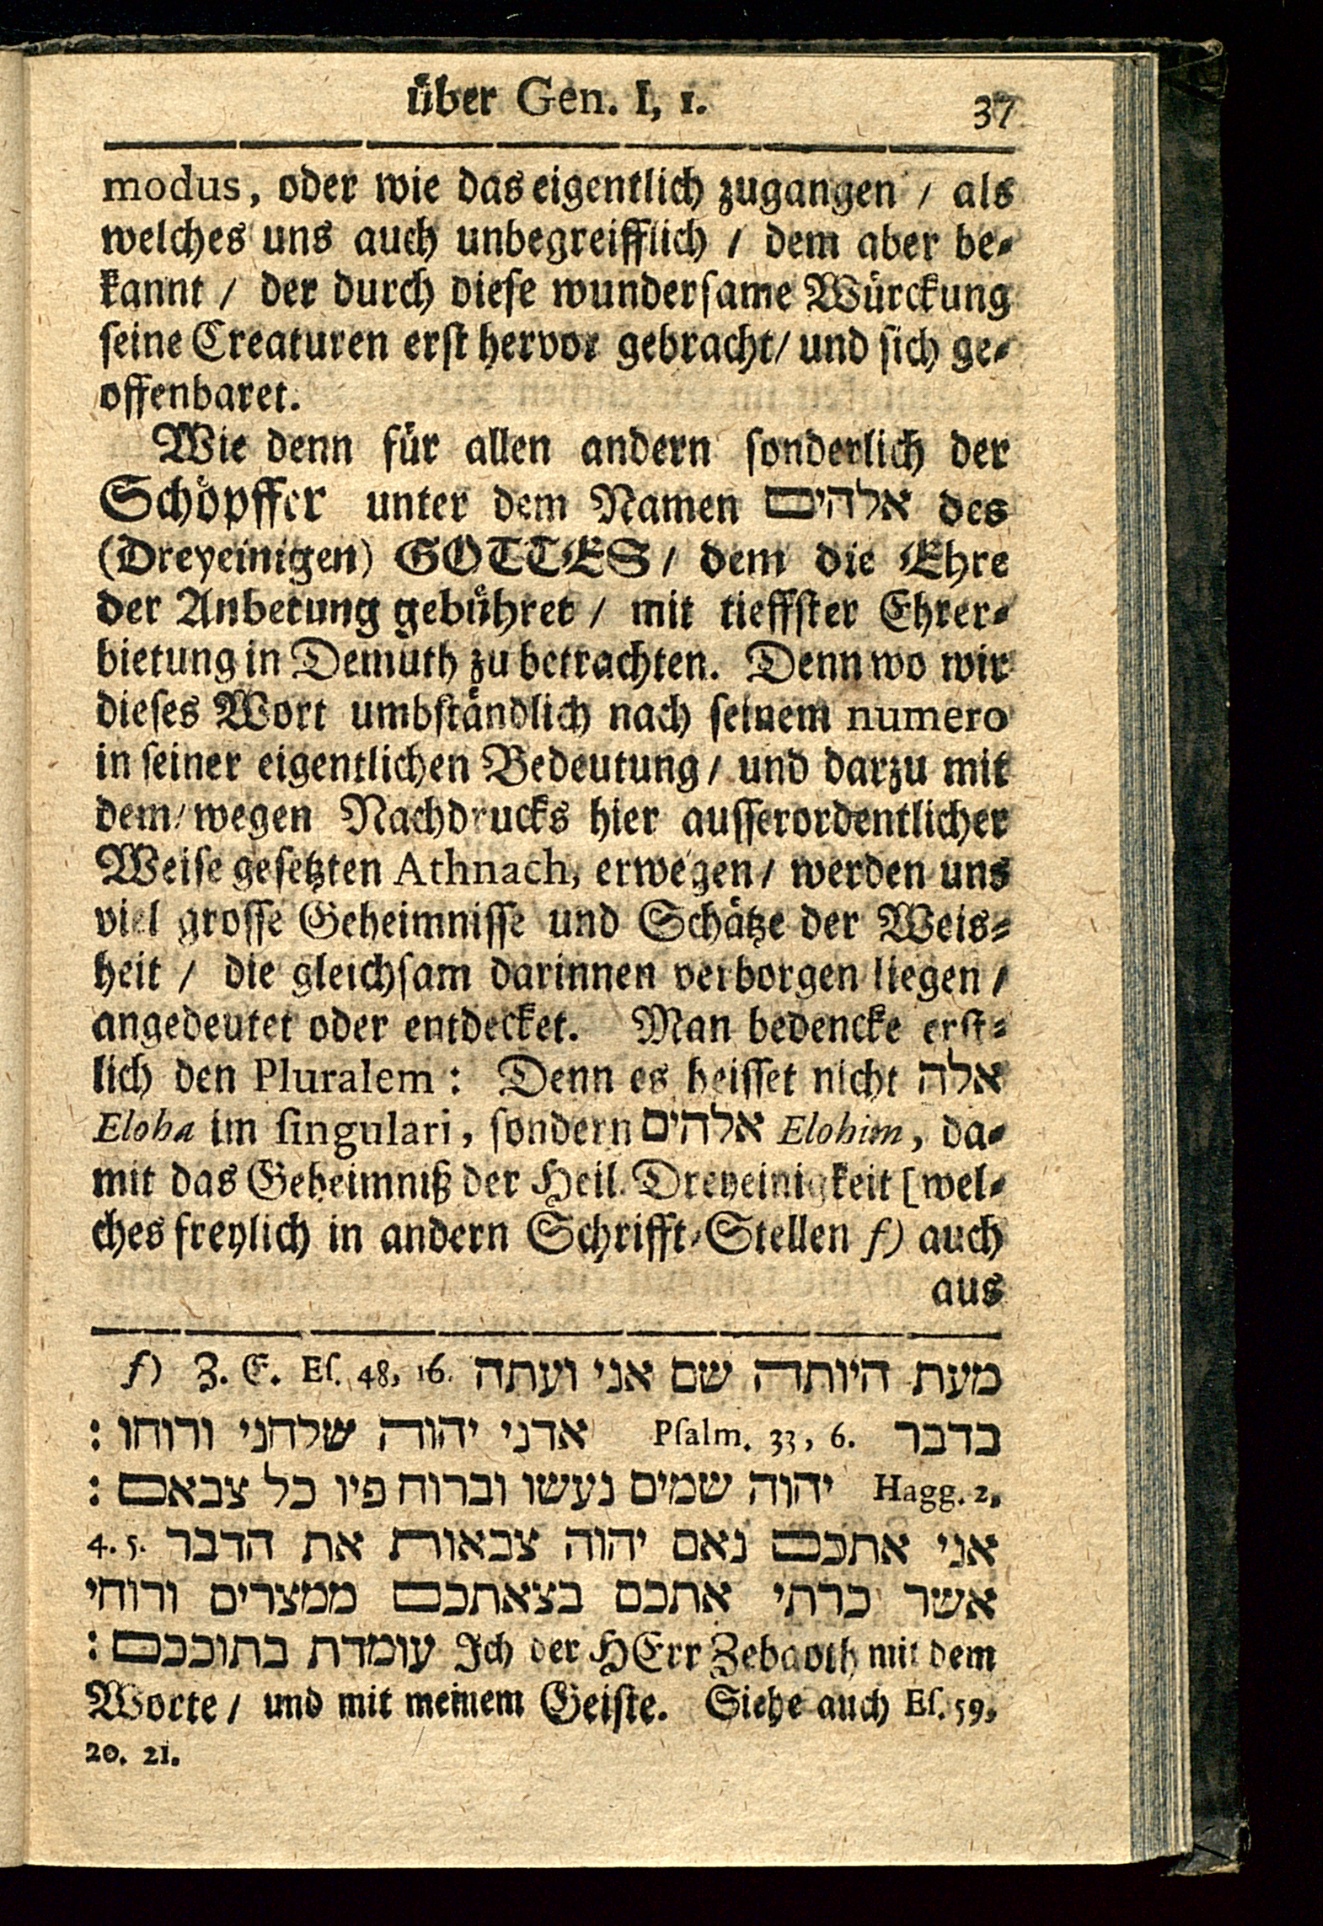 über Gen. I, 1. 37
modus, oder wie das eigentlich zugangen / als
welches uns auch unbegreifflich / dem aber be-
kannt / der durch diese wundersame Würckung
seine Creaturen erst hervor gebracht / und sich ge-
offenbaret.
Wie denn für allen andern sonderlich der
Schöpffer unter dem Namen אלהים des
(Dreyeinigen) GOTTES / dem die Ehre
der Anbetung gebühret / mit tieffster Ehrer-
bietung in Demuth zu betrachten. Denn wo wir
dieses Wort umbständlich nach seinem numero
in seiner eigentlichen Bedeutung / und darzu mit
dem / wegen Nachdrucks hier ausserordentlicher
Weise gesetzten Athnach, erwegen / werden uns
viel grosse Geheimnisse und Schätze der Weis-
heit / die gleichsam darinnen verborgen liegen /
angedeutet oder entdecket. Man bedencke erst-
lich den Pluralem: Denn es heisset nicht אלה
Eloha im singulari, sondern אלהים Elohim, da-
mit das Geheimniß der Heil. Dreyeinigkeit [wel-
ches freylich in andern Schrifft-Stellen f) auch
aus
f) Z. E. Es. 48, 16. מעת היותה שם אני ועתה
אדני יהוה שלחני ורוחו : Psalm. 33, 6. בדבר
יהוה שמים נעשו וברוח פיו כל צבאם : Hagg. 2,
4. 5. אני אתכם נאם יהוה צבאות את הדבר
אשר כרתי אתכם בצאתכם ממצרים ורוחי
עומדת בתוככם : Ich der HErr Zebaoth mit dem
Worte / und mit meinem Geiste. Siehe auch Es. 59,
20. 21.